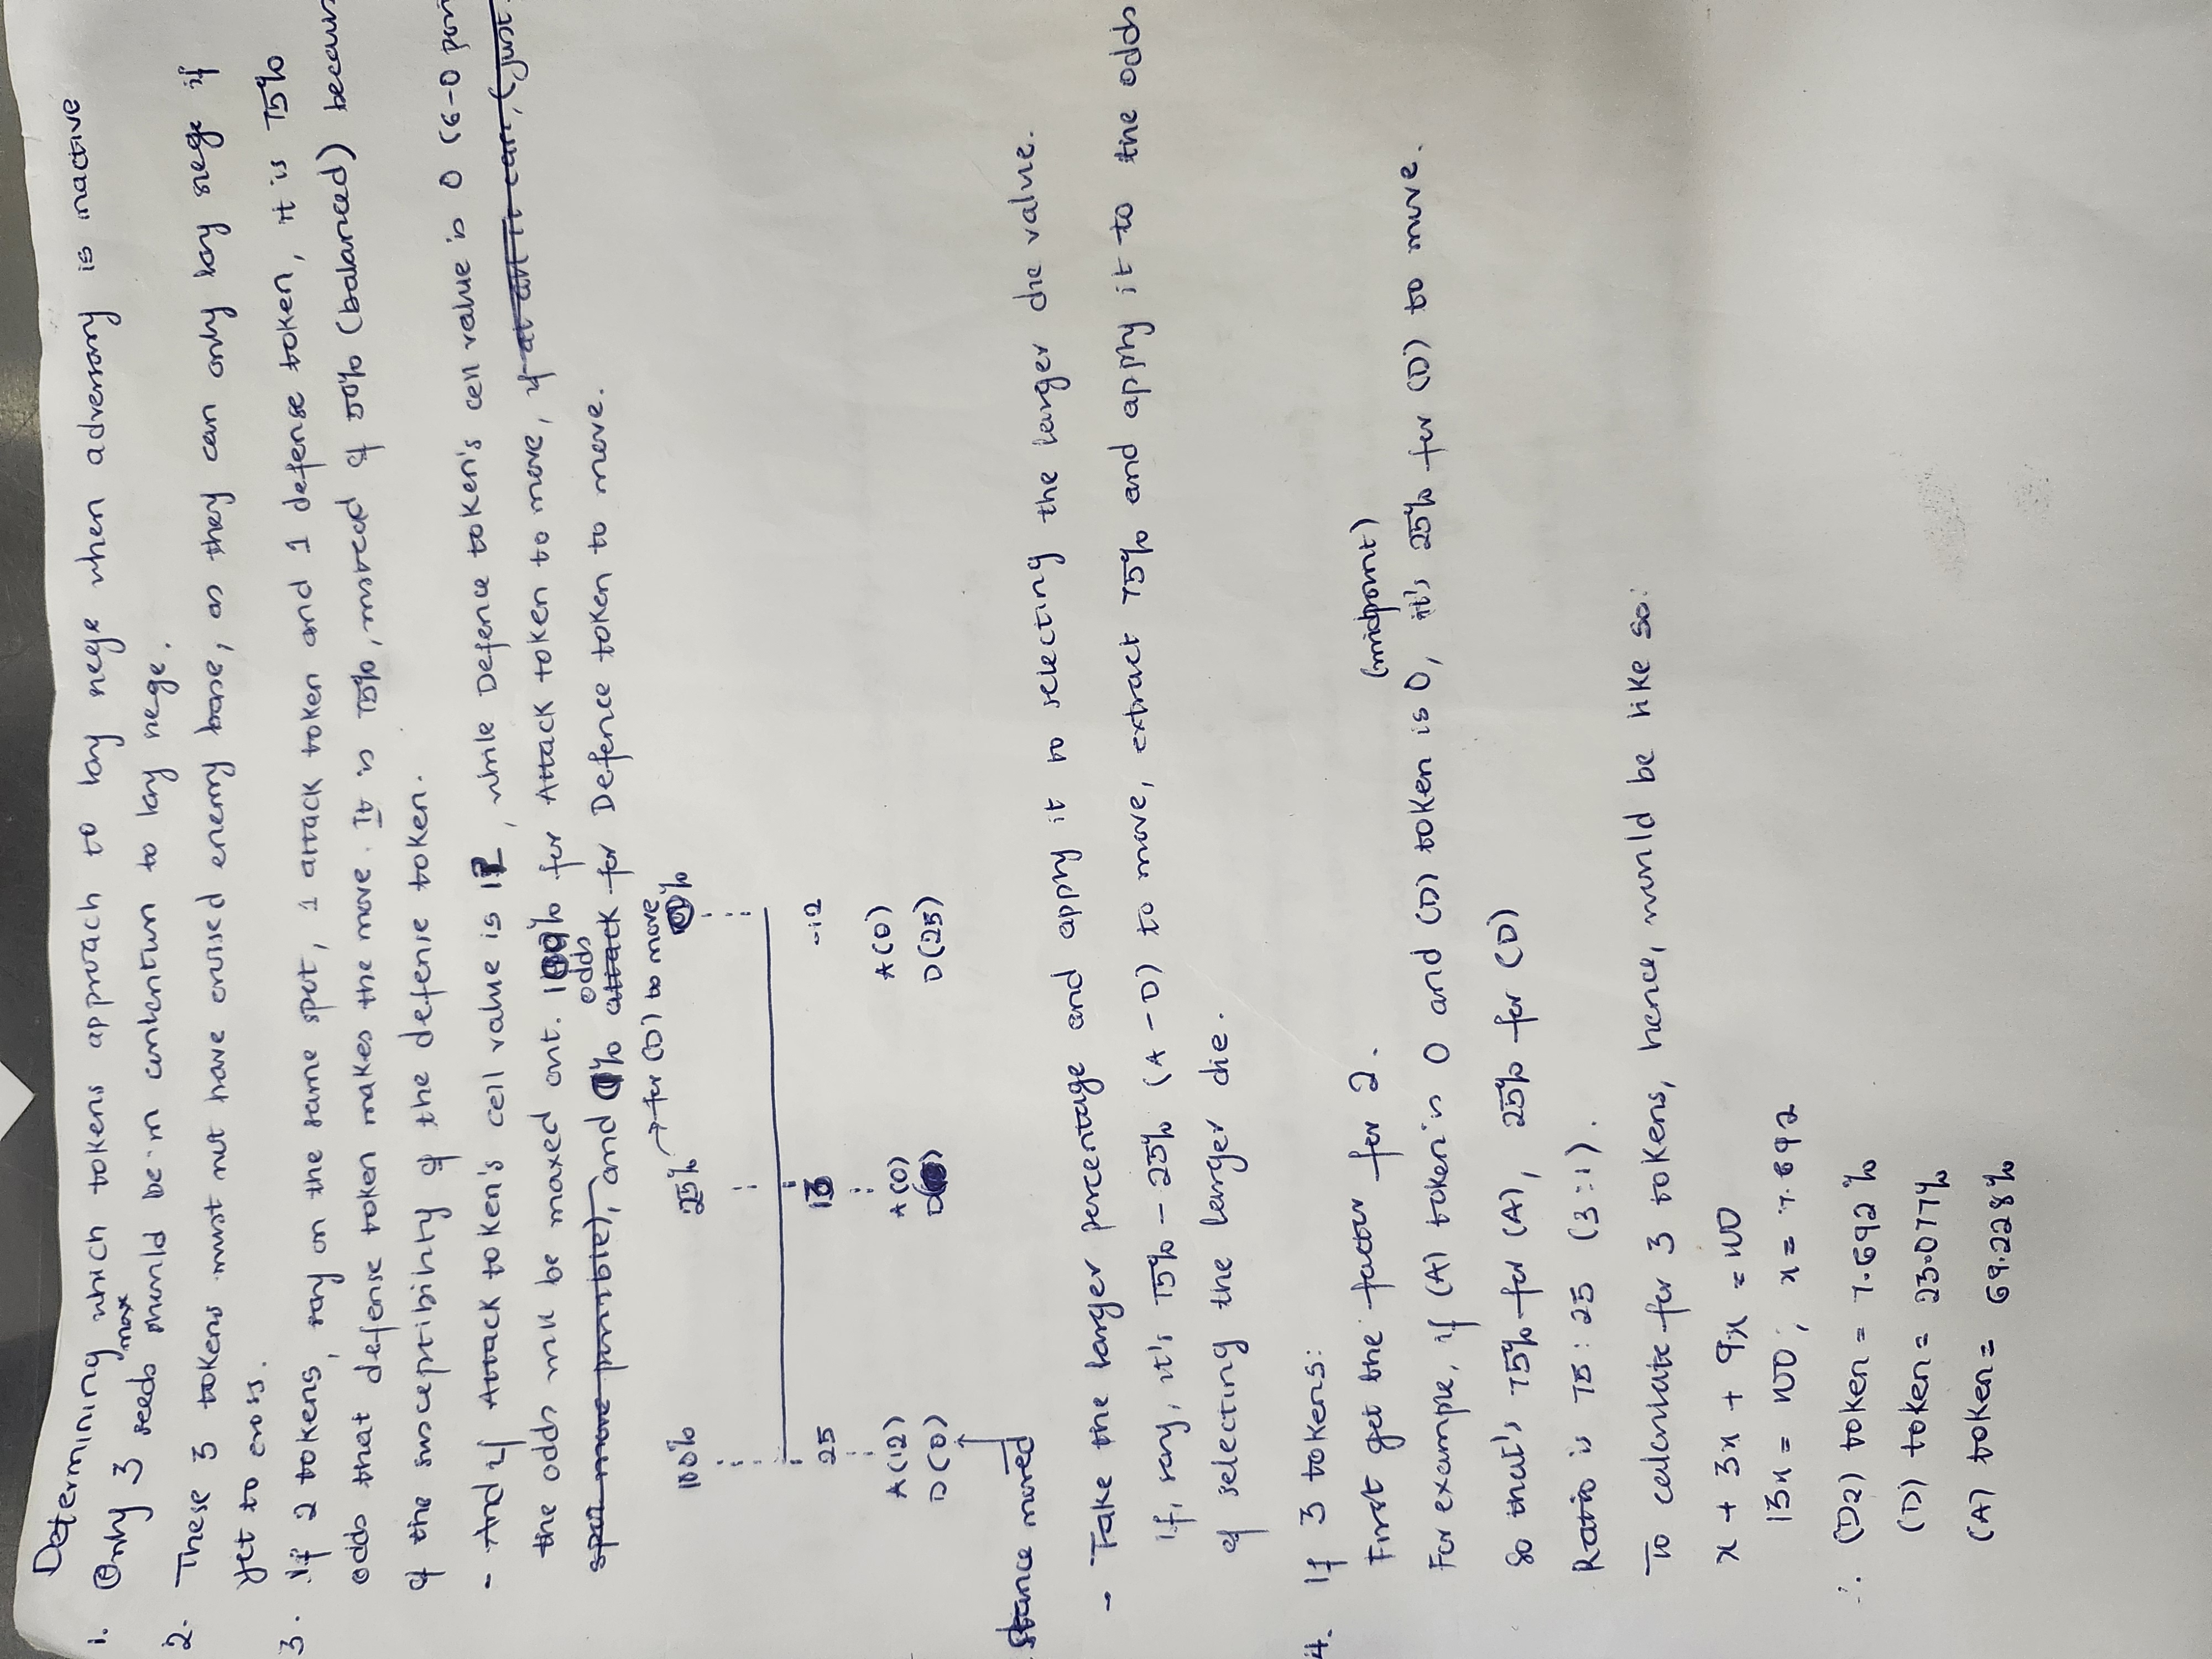 Determining which tokens approach to lay siege when adversary is inactive
1. Only 3 seeds max should be in contention to lay siege.
2. These 3 tokens must not have crossed enemy base, as they can only lay siege if
yet to cross.
3. If 2 tokens, say on the same spot, 1 attack token and 1 defense token, it is 75%
odds that defense token makes the move. It is 75%, instead of 50% (balanced) becaus
of the susceptibility of the defense token.
- And if Attack token's cell value is 12, while Defence token's cell value is 0 (6-0
the odds will be maxed out. 100% for Attack token to move, if at all it can, (just
spot move possible), and 0% attack odds for Defence token to move.
→ for (D) to move
100% 25% 0%
25 13 -12
A(12) A(0) A(0)
D(0) D( ) D(25)
stance moved
- Take the larger percentage and apply it to selecting the larger die value.
If, say, it's 75% - 25% (A - D) to move, extract 75% and apply it to the odds
of selecting the larger die.
4. If 3 tokens:
First get the factor for 2.
(midpoint)
For example, if (A) token is 0 and (D) token is 0, it's 25% for (D) to move.
So that's 75% for (A), 25% for (D)
Ratio is 75 : 25 (3:1).
To calculate for 3 tokens, hence, would be like so:
x + 3x + 9x = 100
13x = 100; x = 7.692
∴ (D2) token = 7.692%
(D) token = 23.077%
(A) token = 69.228%